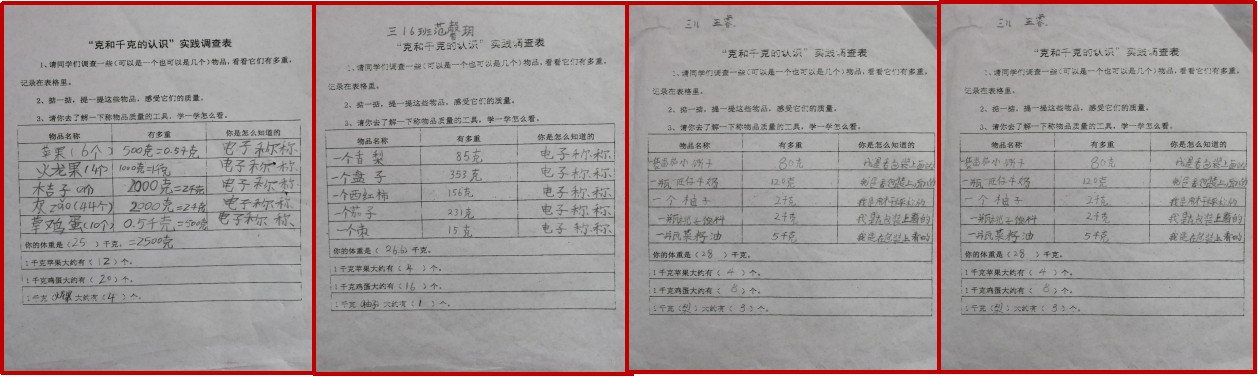 “克和千克的认识”实践调查表
1、请同学们调查一些(可以是一个也可以是几个)物品,看看它们有多重,
记录在表格里。
2、掂一掂,提一提这些物品,感受它们的质量。
3、请你去了解一下称物品质量的工具,学一学怎么看。
物品名称 有多重 你是怎么知道的
苹果(6个) 500克=0.5千克 电子称称
火龙果1个 1000克=1千克 电子称称
2000克=2千克 电子称称
(44个) 2000克=2千克 电子称称
草鸡蛋(10个) 0.5千克=500克 电子称称
你的体重是(25)千克。=2500克
1千克苹果大约有(12)个。
1千克鸡蛋大约有(20)个。
1千克 大约有(4)个。
三16班范馨玥
“克和千克的认识”实践调查表
1、请同学们调查一些(可以是一个也可以是几个)物品,看看它们有多重,
记录在表格里。
2、掂一掂,提一提这些物品,感受它们的质量。
3、请你去了解一下称物品质量的工具,学一学怎么看。
物品名称 有多重 你是怎么知道的
一个香梨 85克 电子称称
一个盘子 353克 电子称称
一个西红柿 156克 电子称称
一个茄子 231克 电子称称
一个枣 15克 电子称称
你的体重是( )千克。
1千克苹果大约有(4)个。
1千克鸡蛋大约有(16)个。
1千克 柚子 大约有(1)个。
“克和千克的认识”实践调查表
1、请同学们调查一些(可以是一个也可以是几个)物品,看看它们有多重,
记录在表格里。
2、掂一掂,提一提这些物品,感受它们的质量。
3、请你去了解一下称物品质量的工具,学一学怎么看。
物品名称 有多重 你是怎么知道的
80克
一瓶旺仔牛奶 120克
一个柚子 2千克
一瓶 饮料 2千克
一瓶菜籽油 5千克
你的体重是(28)千克。
1千克苹果大约有(4)个。
1千克鸡蛋大约有( )个。
1千克(梨)大约有(3)个。
“克和千克的认识”实践调查表
1、请同学们调查一些(可以是一个也可以是几个)物品,看看它们有多重,
记录在表格里。
2、掂一掂,提一提这些物品,感受它们的质量。
3、请你去了解一下称物品质量的工具,学一学怎么看。
物品名称 有多重 你是怎么知道的
80克
一瓶旺仔牛奶 120克
一个柚子 2千克
一瓶 饮料 2千克
一瓶菜籽油 5千克
你的体重是(28)千克。
1千克苹果大约有(4)个。
1千克鸡蛋大约有( )个。
1千克(梨)大约有(3)个。